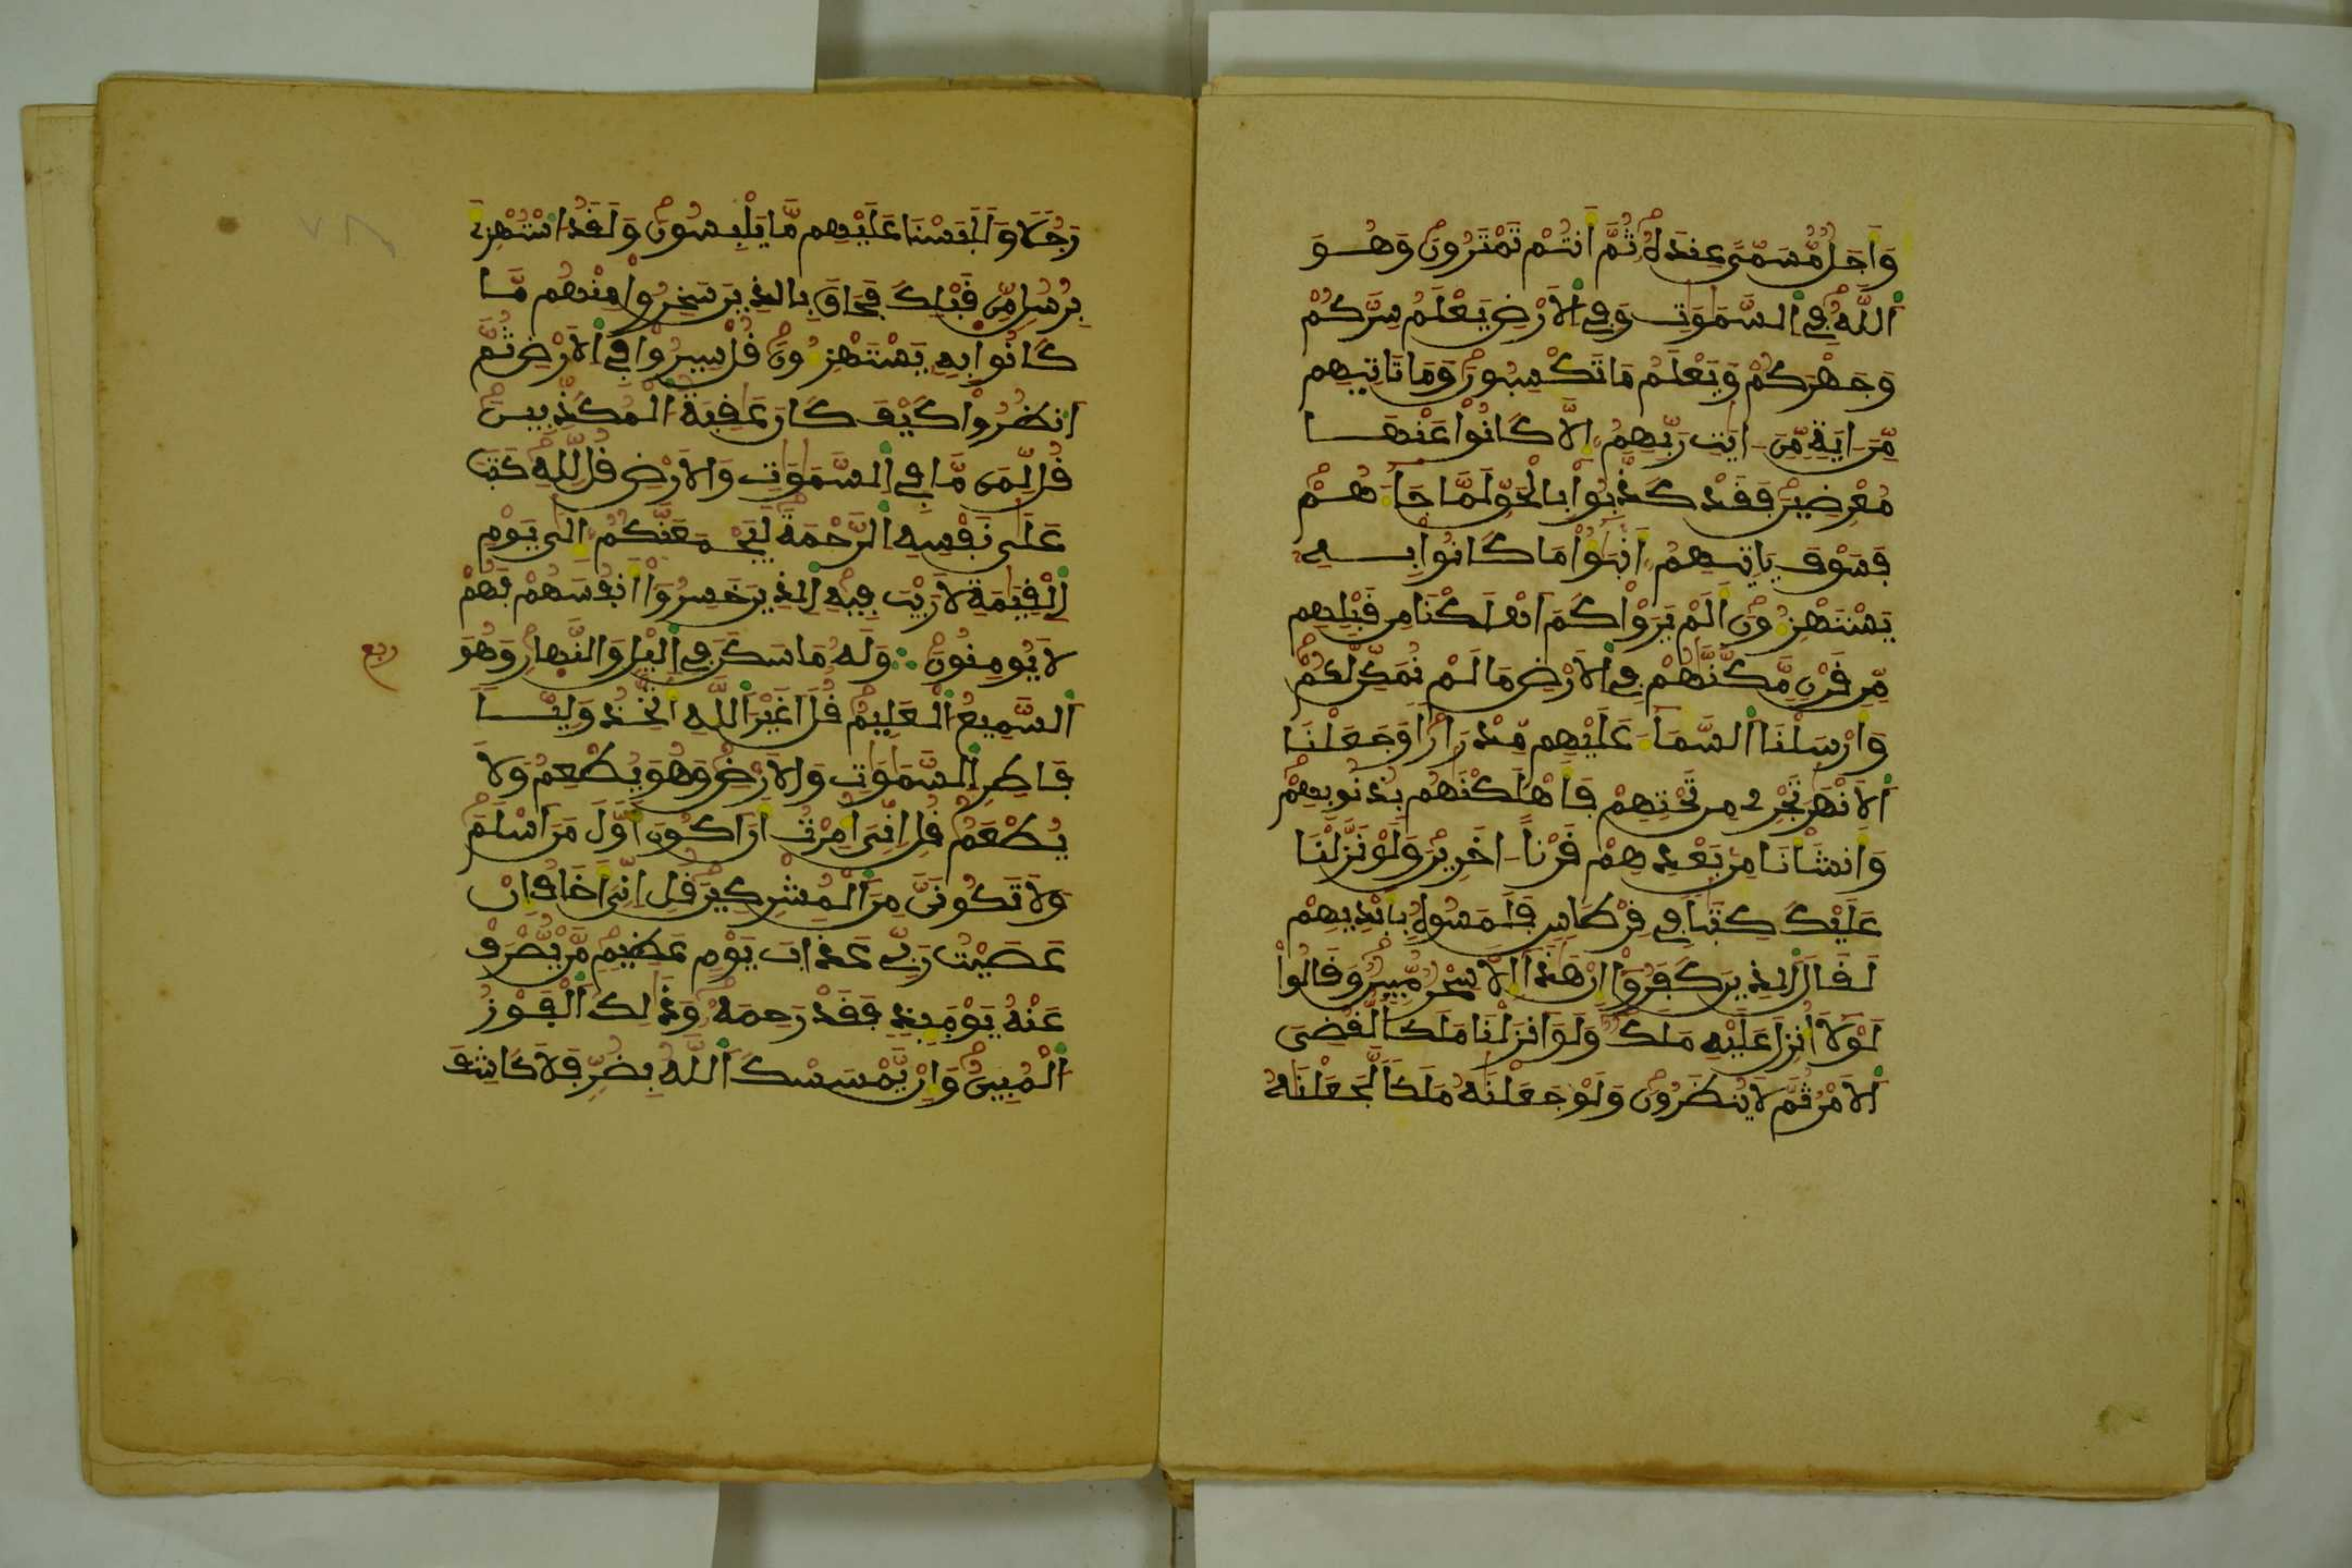 وَأَجَلٌ مُّسَمًّى عِندَهُ ثُمَّ أَنتُمْ تَمْتَرُونَ وَهُوَ
اَللَّهُ فِي اِلسَّمَوَتِ وَفِي اِلَارْضِ يَعْلَمُ سِرَّكُمْ
وَجَهْرَكُمْ وَيَعْلَمُ مَا تَكْسِبُونَ وَمَا تَاتِيهِم
مِّنَ ايَةٍ مِّنَ ايَتِ رَبِّهِمُ إِلَّا كَانُواْ عَنْهَا
مُعْرِضِينَ فَقَدْ كَذَّبُواْ بِالْحَقِّ لَمَّا جَآءَهُمْ
فَسَوْفَ يَاتِيهِمُ أَنۢبَٰٓؤُاْ مَا كَانُواْ بِهِ
يَسْتَهْزِءُونَ أَلَمْ يَرَوْاْ كَمَ اَهْلَكْنَا مِن قَبْلِهِم
مِّن قَرْنٍ مَّكَّنَّهُمْ فِي اِلَارْضِ مَا لَمْ نُمَكِّن لَّكُمْ
وَأَرْسَلْنَا اَلسَّمَآءَ عَلَيْهِم مِّدْرَارًا وَجَعَلْنَا
اَلَانْهَرَ تَجْرِي مِن تَحْتِهِمْ فَأَهْلَكْنَهُم بِذُنُوبِهِمْ
وَأَنشَأْنَا مِنۢ بَعْدِهِمْ قَرْنًا اخَرِينَ وَلَوْ نَزَّلْنَا
عَلَيْكَ كِتَبًا فِي قِرْطَاسٍ فَلَمَسُوهُ بِأَيْدِيهِمْ
لَقَالَ اَلذِينَ كَفَرُوٓاْ إِنْ هَذَآ إِلَّا سِحْرٌ مُّبِينٌ وَقَالُواْ
لَوْلَآ أُنزِلَ عَلَيْهِ مَلَكٌ وَلَوَ اَنزَلْنَا مَلَكًا لَّقُضِيَ
اَلَامْرُ ثُمَّ لَا يُنظَرُونَ وَلَوْ جَعَلْنَهُ مَلَكًا لَّجَعَلْنَهُ
رَجُلًا وَلَلَبَسْنَا عَلَيْهِم مَّا يَلْبِسُونَ وَلَقَدُ اُسْتُهْزِئَ
بِرُسُلٍ مِّن قَبْلِكَ فَحَاقَ بِالذِينَ سَخِرُواْ مِنْهُم مَّا
كَانُواْ بِهِ يَسْتَهْزِءُونَ قُلْ سِيرُواْ فِي اِلَارْضِ ثُمَّ
اَنظُرُواْ كَيْفَ كَانَ عَقِبَةُ اُلْمُكَذِّبِينَ
قُل لِّمَن مَّا فِي اِلسَّمَوَتِ وَالَارْضِ قُل لِّلهِ كَتَبَ
عَلَى نَفْسِهِ اِلرَّحْمَةَ لَيَجْمَعَنَّكُمُ إِلَى يَوْمِ
اِلْقِيَمَةِ لَا رَيْبَ فِيهِ اِلذِينَ خَسِرُوٓاْ أَنفُسَهُمْ فَهُمْ
لَا يُومِنُونَ وَلَهُ مَا سَكَنَ فِي اِليْلِ وَالنَّهَارِ وَهُوَ
ربع
اَلسَّمِيعُ اُلْعَلِيمُ قُلَ اَغَيْرَ اَللَّهِ أَتَّخِذُ وَلِيًّا
فَاطِرِ اِلسَّمَوَتِ وَالَارْضِ وَهُوَ يُطْعِمُ وَلَا
يُطْعَمُ قُلِ اِنِّيَ أُمِرْتُ أَنَ اَكُونَ أَوَّلَ مَنَ اَسْلَمَ
وَلَا تَكُونَنَّ مِنَ اَلْمُشْرِكِينَ قُلِ اِنِّيَ أَخَافُ إِنْ
عَصَيْتُ رَبِّي عَذَابَ يَوْمٍ عَظِيمٍ مَّنْ يُّصْرَفْ
عَنْهُ يَوْمَئِذٍ فَقَدْ رَحِمَهُ وَذَلِكَ اَلْفَوْزُ
اُلْمُبِينُ وَإِنْ يَّمْسَسْكَ اَللَّهُ بِضُرٍّ فَلَا كَاشِفَ